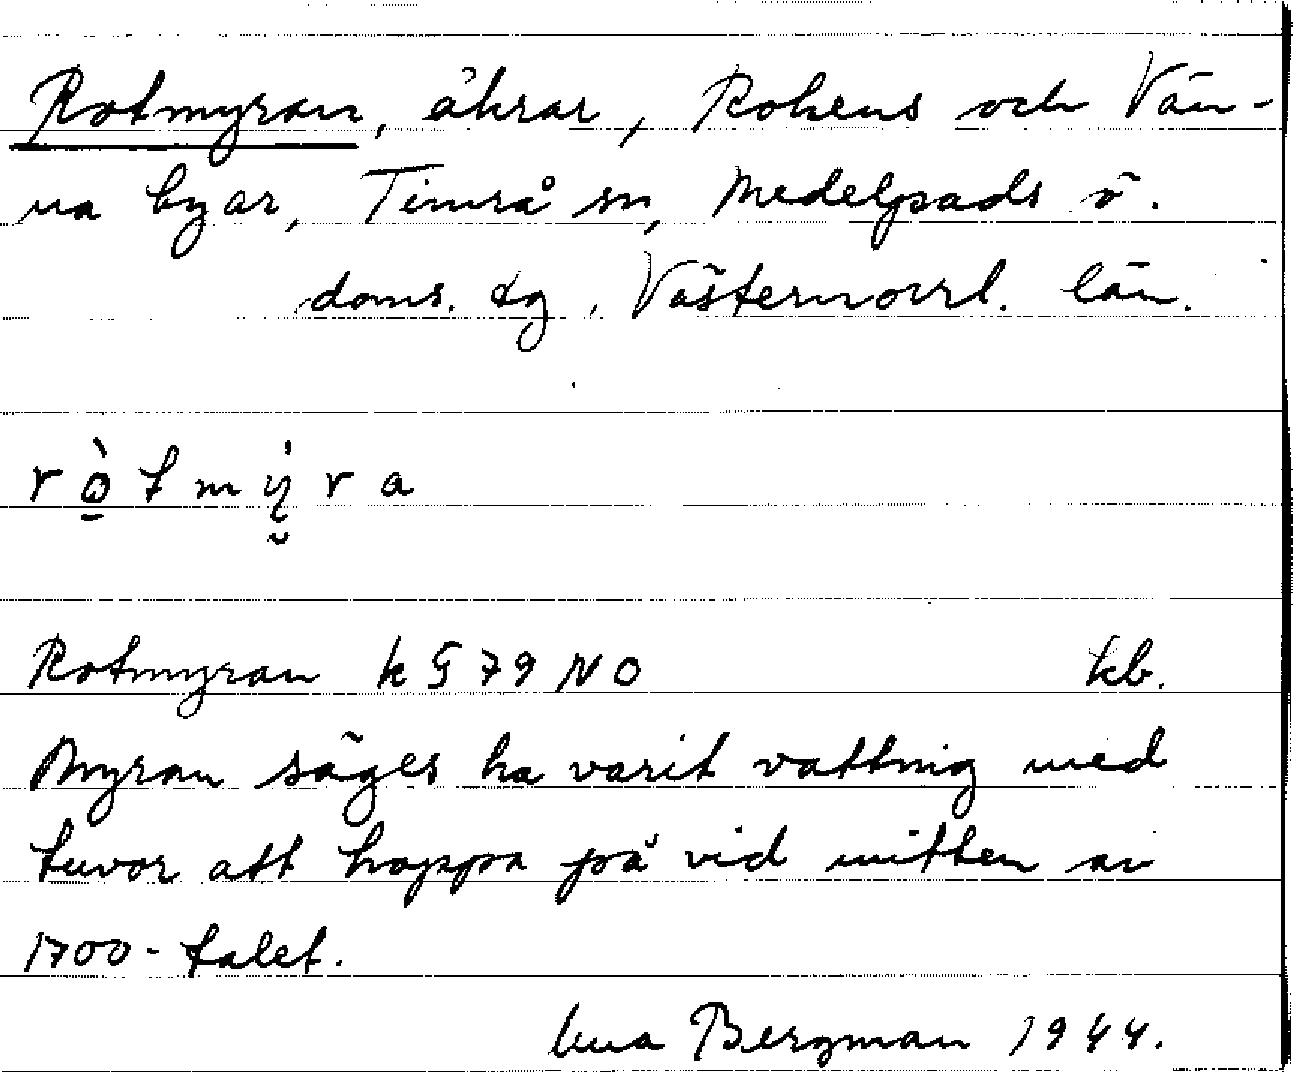 Rotmyran, åkrar, Rokens och Vän-
na byar, Timrå sn, Medelpads ö.
doms. dg, Västernorrl. län.
ròtmýra
Rotmyran k § 79 NO kb.
Myran säges ha varit vattnig med
tuvor att hoppa på vid mitten av
1700-talet.
Bergman 1944.